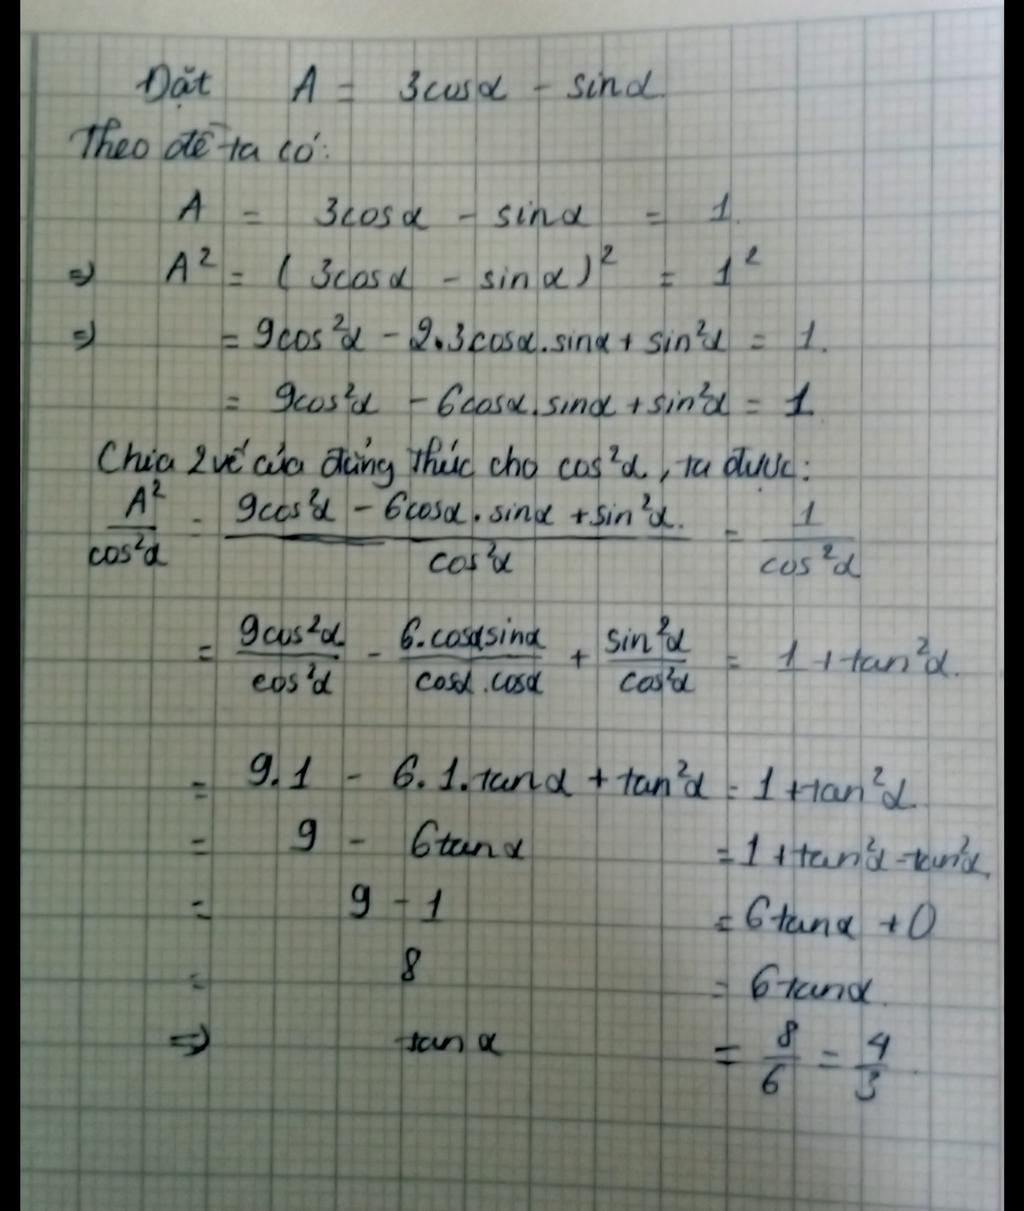 Đặt A = 3cosα - sinα
Theo đề ta có:
A = 3cosα - sinα = 1.
=> A² = ( 3cosα - sinα )² = 1²
=> = 9cos²α - 2.3cosα.sinα + sin²α = 1.
= 9cos²α - 6cosα.sinα + sin²α = 1
Chia 2 vế của đẳng thức cho cos²α, ta được:
A²/cos²α = (9cos²α - 6cosα.sinα + sin²α)/cos²α = 1/cos²α
= 9cos²α/cos²α - 6.cosαsinα/cosα.cosα + sin²α/cos²α = 1 + tan²α.
= 9.1 - 6.1.tanα + tan²α = 1 + tan²α
= 9 - 6tanα = 1 + tan²α - tan²α.
= 9 - 1 = 6tanα + 0
= 8 = 6tanα.
=> tanα = 8/6 = 4/3